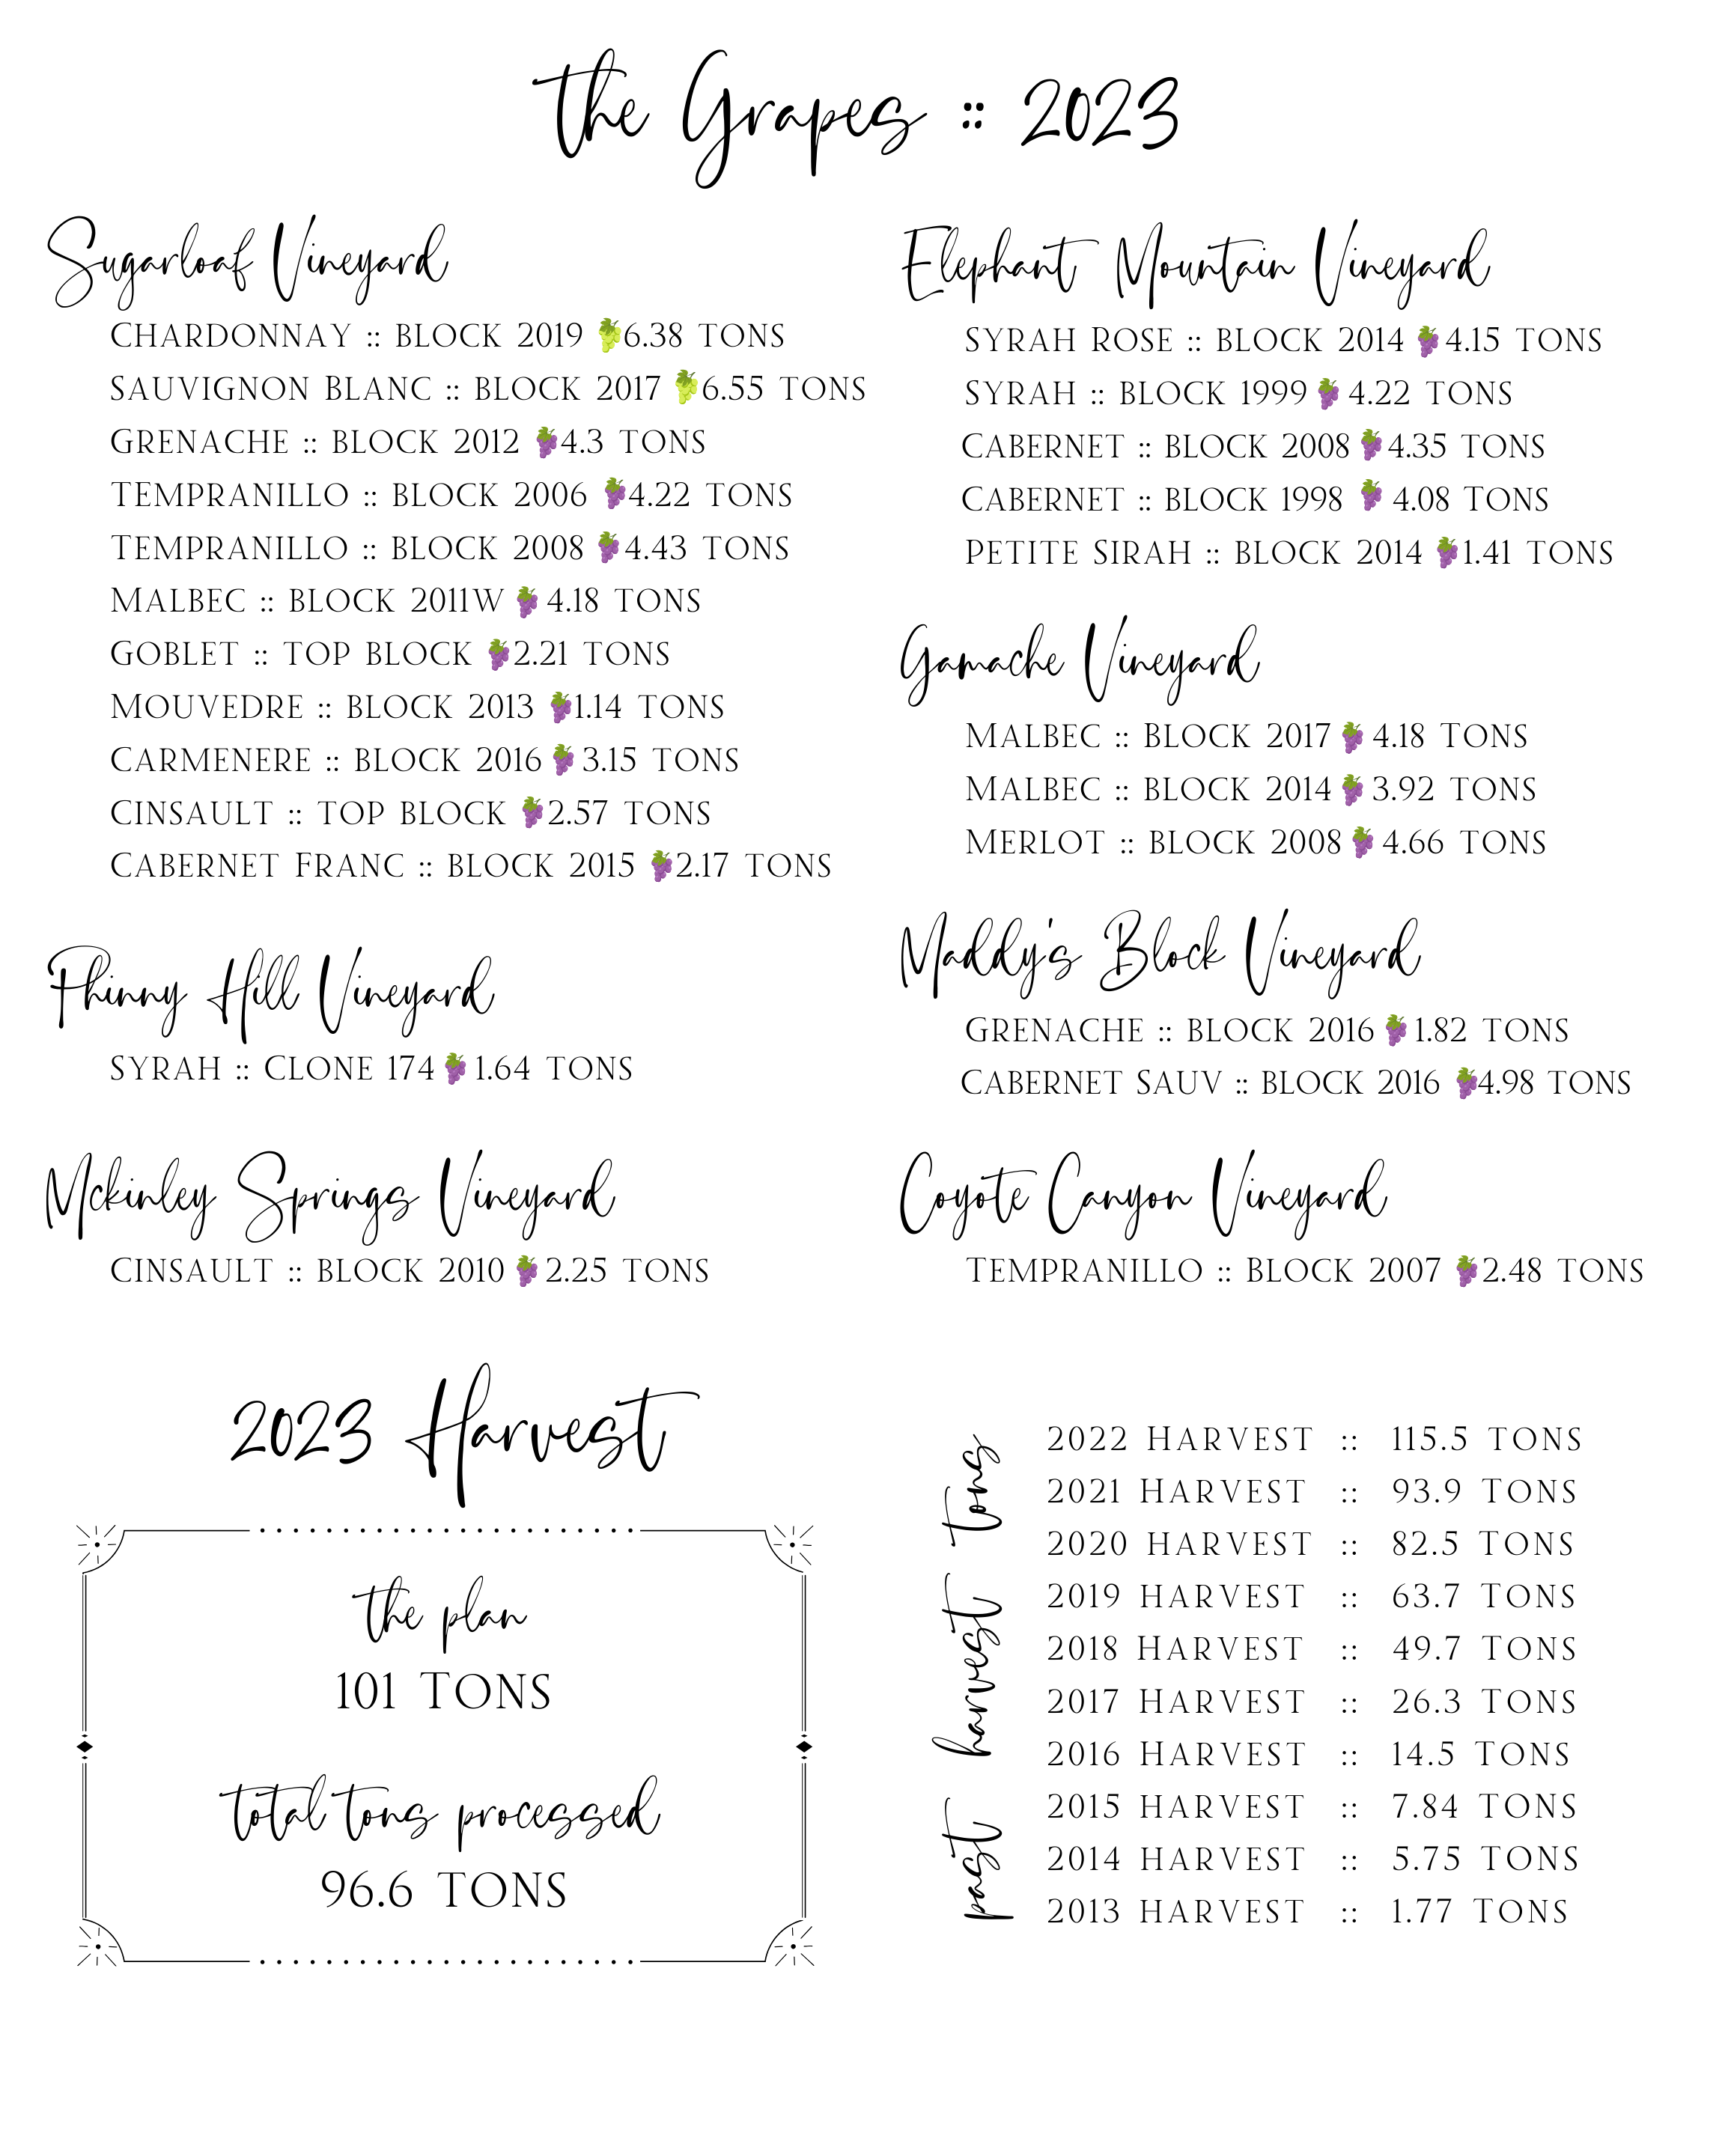 the Grapes :: 2023
Sugarloaf Vineyard
Chardonnay :: Block 2019 🍇6.38 Tons
Sauvignon Blanc :: Block 2017 🍇6.55 Tons
Grenache :: Block 2012 🍇4.3 Tons
Tempranillo :: Block 2006 🍇4.22 Tons
Tempranillo :: Block 2008 🍇4.43 Tons
Malbec :: Block 2011W 🍇 4.18 Tons
Goblet :: Top Block 🍇2.21 Tons
Mouvedre :: Block 2013 🍇1.14 Tons
Carmenere :: Block 2016 🍇 3.15 Tons
Cinsault :: Top Block 🍇2.57 Tons
Cabernet Franc :: Block 2015 🍇2.17 Tons
Phinny Hill Vineyard
Syrah :: Clone 174 🍇 1.64 Tons
Mckinley Springs Vineyard
Cinsault :: Block 2010 🍇 2.25 Tons
Elephant Mountain Vineyard
Syrah Rose :: Block 2014 🍇4.15 Tons
Syrah :: Block 1999 🍇 4.22 Tons
Cabernet :: Block 2008 🍇4.35 Tons
Cabernet :: Block 1998 🍇 4.08 Tons
Petite Sirah :: Block 2014 🍇1.41 Tons
Gamache Vineyard
Malbec :: Block 2017 🍇 4.18 Tons
Malbec :: Block 2014 🍇 3.92 Tons
Merlot :: Block 2008 🍇 4.66 Tons
Maddy's Block Vineyard
Grenache :: Block 2016 🍇 1.82 Tons
Cabernet Sauv :: Block 2016 🍇4.98 Tons
Coyote Canyon Vineyard
Tempranillo :: Block 2007 🍇2.48 Tons
2023 Harvest
the plan
101 Tons
total tons processed
96.6 Tons
past harvest tons
2022 Harvest :: 115.5 Tons
2021 Harvest :: 93.9 Tons
2020 Harvest :: 82.5 Tons
2019 Harvest :: 63.7 Tons
2018 Harvest :: 49.7 Tons
2017 Harvest :: 26.3 Tons
2016 Harvest :: 14.5 Tons
2015 Harvest :: 7.84 Tons
2014 Harvest :: 5.75 Tons
2013 Harvest :: 1.77 Tons